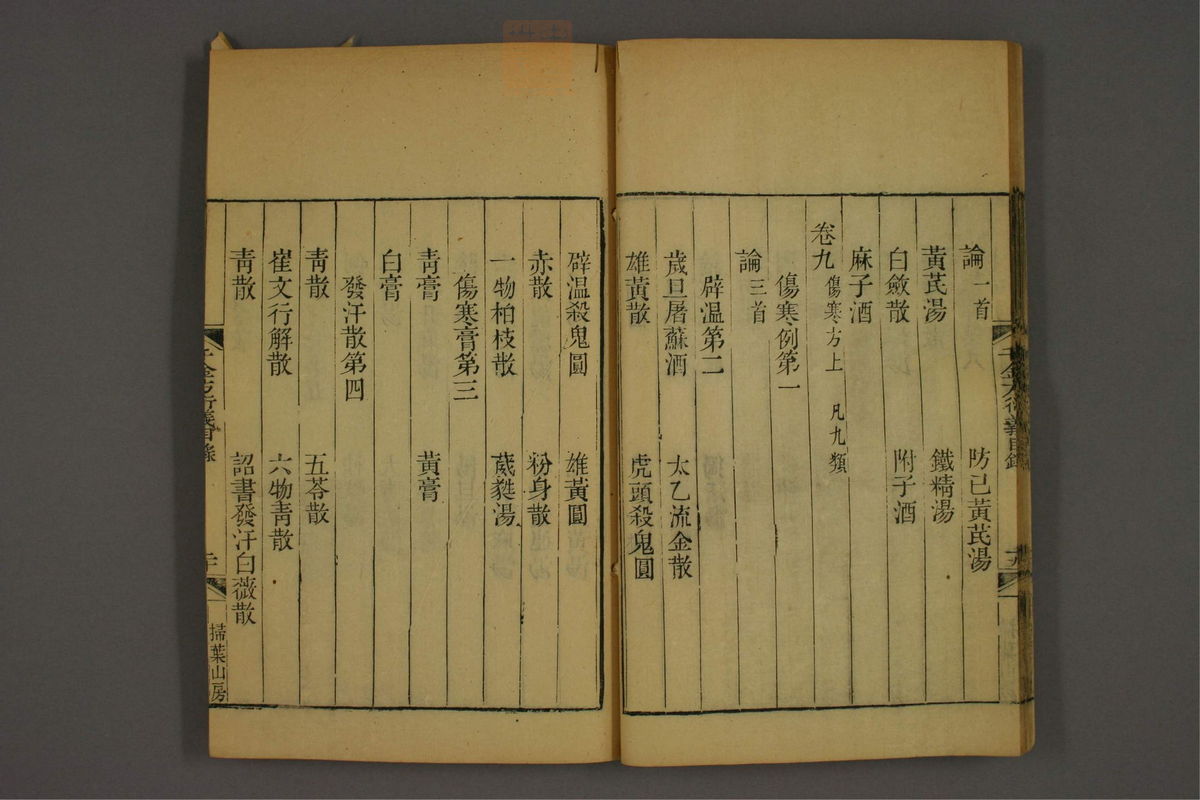 論一首　防己黃芪湯
黃芪湯　鐵精湯
白斂散　附子酒
麻子酒
卷九傷寒方上　凡九類
傷寒例第一
論三首
辟溫第二
歲旦屠蘇酒　太乙流金散
雄黃散　虎頭殺鬼圓
辟溫殺鬼圓　雄黃圓
赤散　粉身散
一物柏枝散　葳蕤湯
傷寒膏第三
青膏　黃膏
白膏
發汗散第四
青散　五苓散
崔文行解散　六物青散
青散　詔書發汗白薇散
千金方衍義目錄　二十　掃葉山房